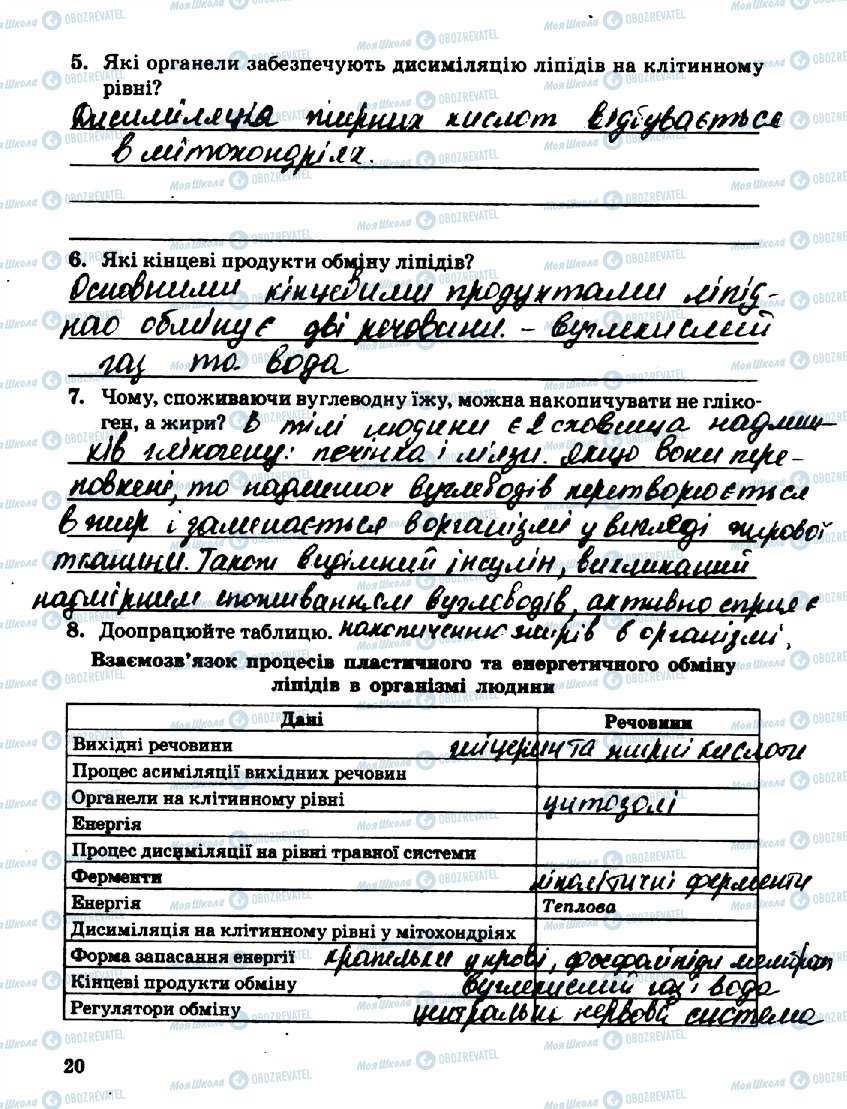 5. Які органели забезпечують дисиміляцію ліпідів на клітинному
рівні?
Дисиміляція жирних кислот відбувається
в мітохондріях.
6. Які кінцеві продукти обміну ліпідів?
Основними кінцевими продуктами ліпід-
ного обміну є дві речовини. – вуглекислий
газ та вода
7. Чому, споживаючи вуглеводну їжу, можна накопичувати не гліко-
ген, а жири? В тілі людини є 2 сховища надлиш-
ків глікогену: печінка і м'язи. Якщо вони пере-
повнені, то надлишок вуглеводів перетворюється
в жир і залишається в організмі у вигляді жирової
тканини. Також виділений інсулін, викликаний
надмірним споживанням вуглеводів, активно сприяє
8. Доопрацюйте таблицю. накопиченню жирів в організмі.
Взаємозв'язок процесів пластичного та енергетичного обміну
ліпідів в організмі людини
Дані Речовини
Вихідні речовини гліцерин та жирні кислоти
Процес асиміляції вихідних речовин
Органели на клітинному рівні цитозолі
Енергія
Процес дисиміляції на рівні травної системи
Ферменти ліполітичні ферменти
Енергія Теплова
Дисиміляція на клітинному рівні у мітохондріях
Форма запасання енергії крапельки у крові, фосфоліпіди мембран
Кінцеві продукти обміну вуглекислий газ і вода
Регулятори обміну центральні нервові система
20